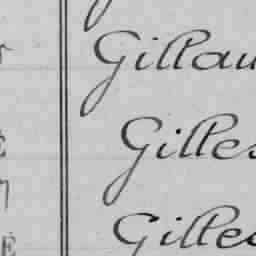 Gillau
Gilles
Gilles